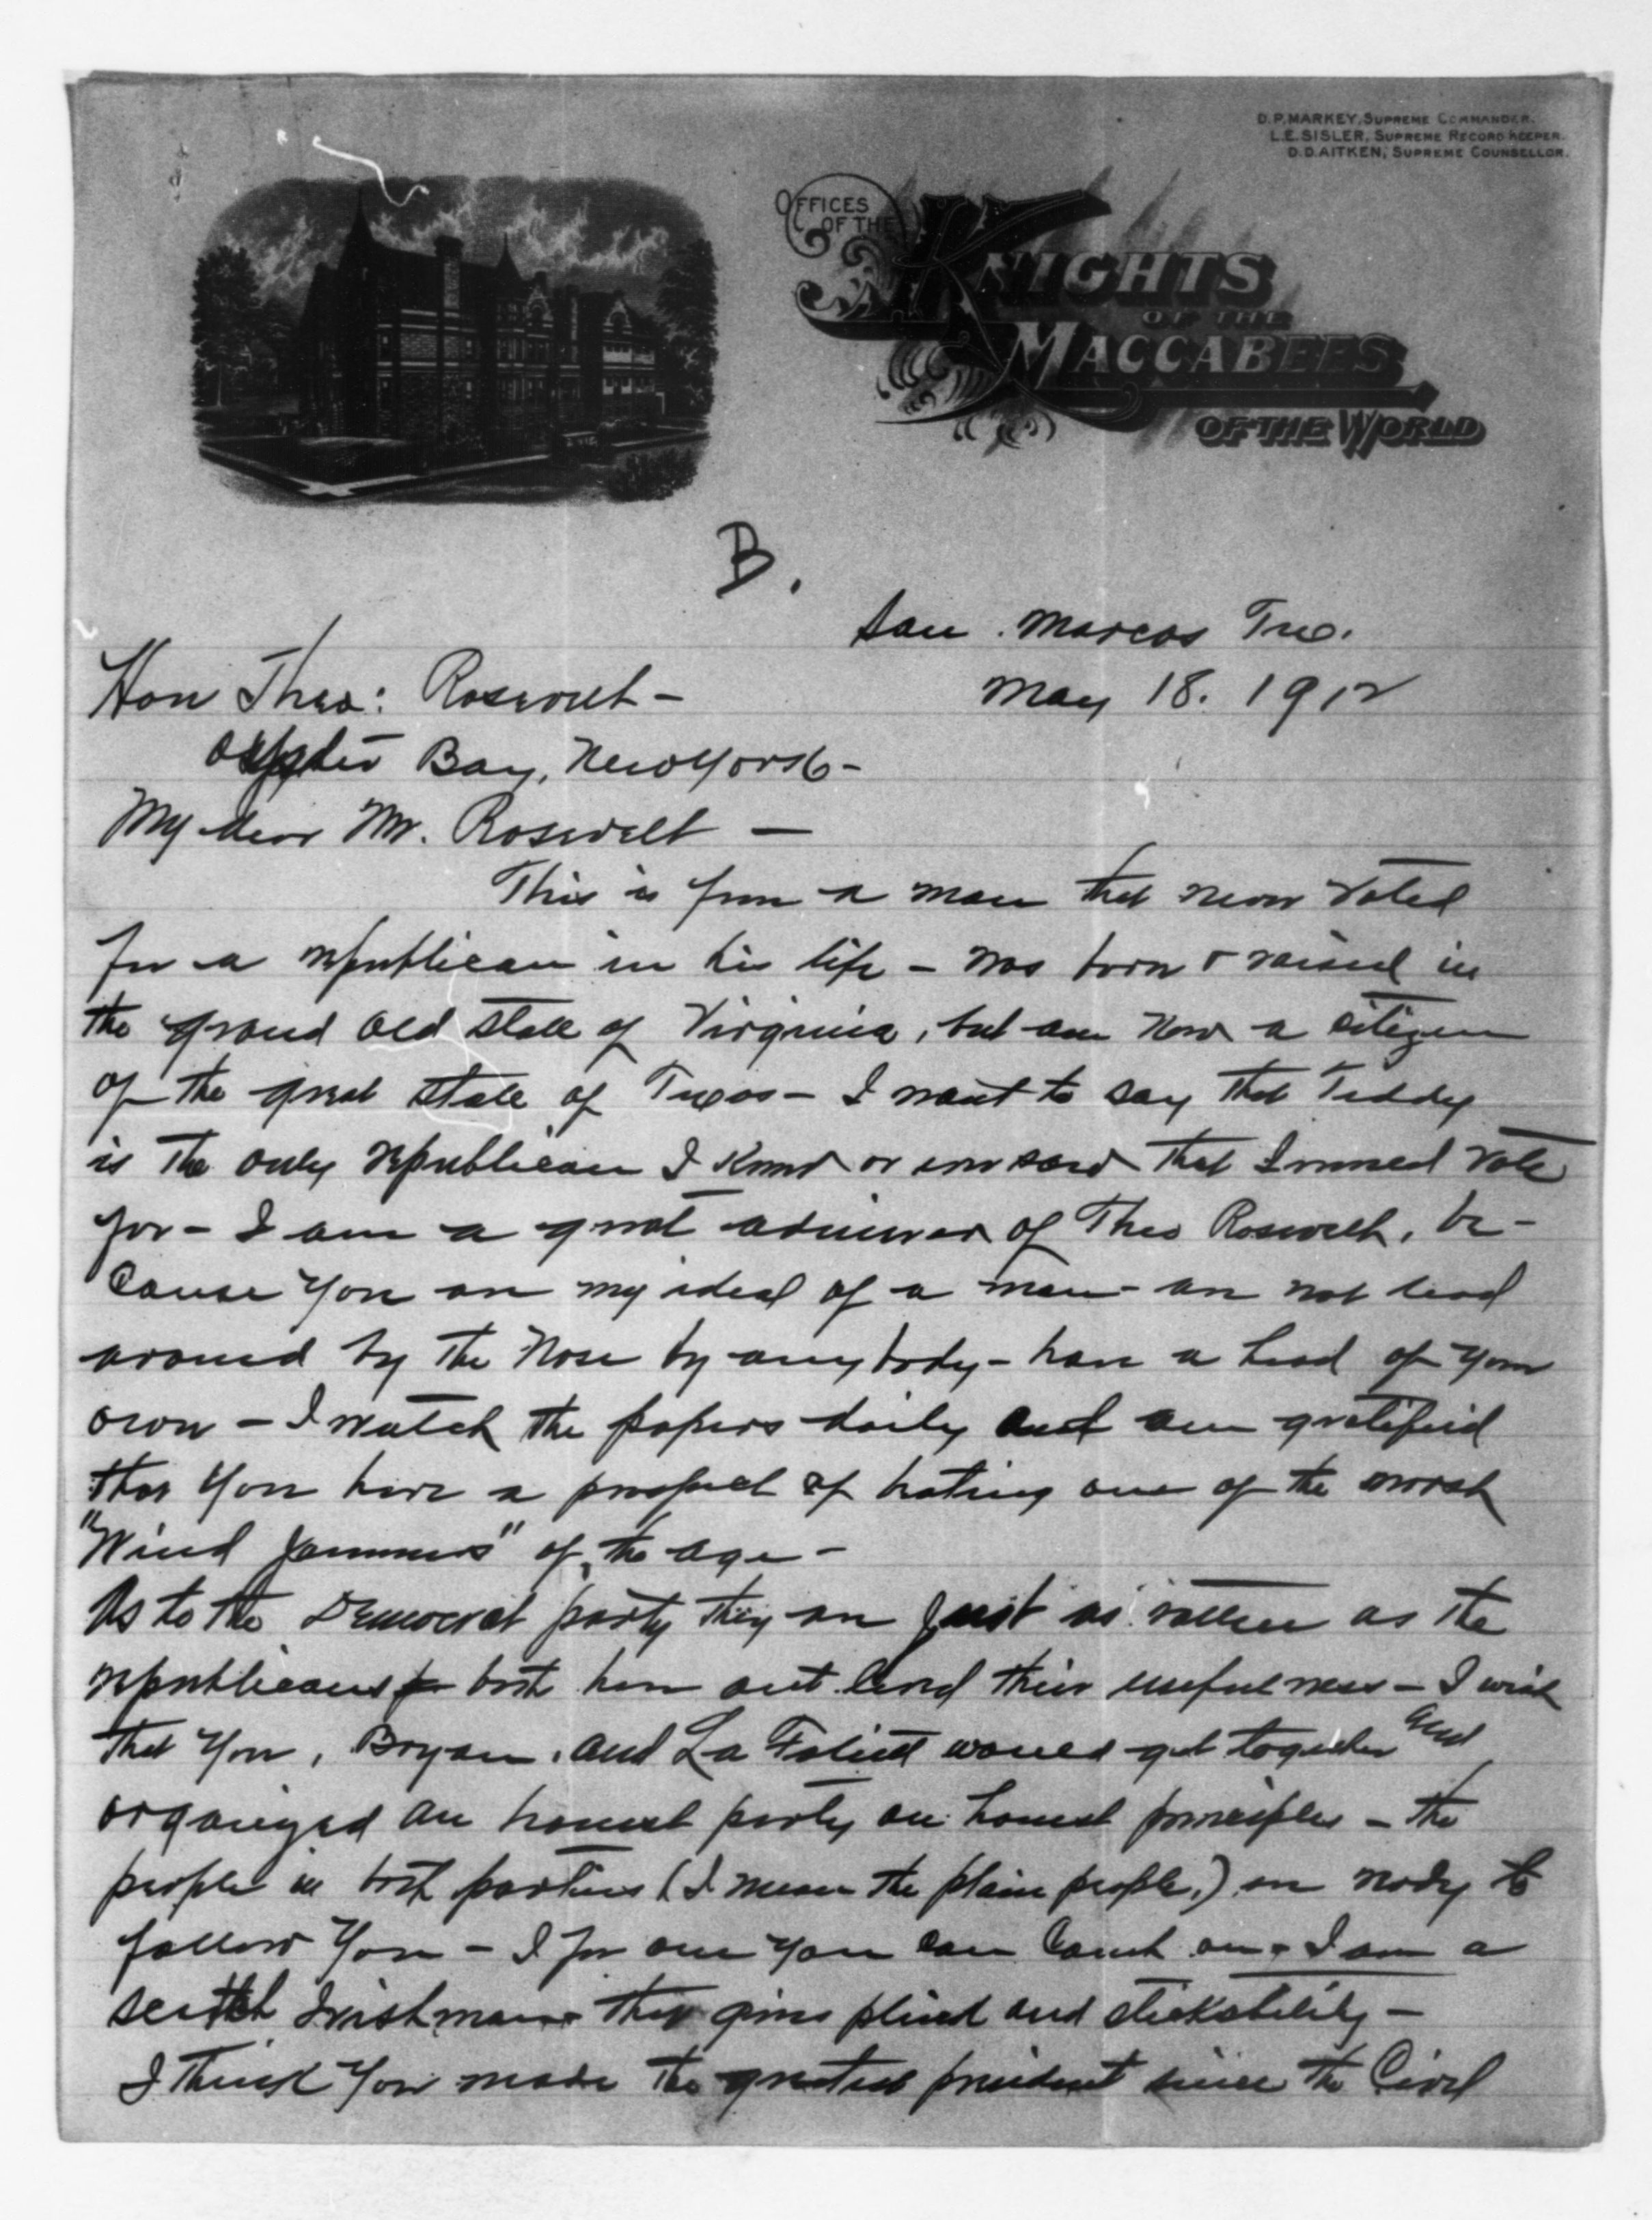 D.P. MARKEY, SUPREME COMMANDER.
L.E. SISLER, SUPREME RECORD KEEPER.
D.D. AITKEN, SUPREME COUNSELLOR.
OFFICES
OF THE
KNIGHTS
OF THE
MACCABEES
OF THE WORLD
B.
San. Marcos Tex.
May 18. 1912
Hon Theo: Rosevelt -
Oyster Bay, New York -
My dear Mr. Rosevelt —
This is from a man that never voted
for a republican in his life - was born & raised in
the grand old state of Virginia, but am now a citizen
of the great state of Texas - I want to say that Teddy
is the only republican I know or ever saw that I would vote
for - I am a great admirer of Theo Rosevelt, be-
cause you are my ideal of a man - are not lead
around by the nose by anybody - have a head of your
own - I watch the papers daily and am gratified
that you have a prospect of beating one of the worst
"Wind Jammers" of the age -
As to the Democrat party they are just as rotten as the
republicans both have out lived their usefulness - I wish
that you, Bryan, and La Folied would get together and
organized an honest party on honest principles - the
people in both parties (I mean the plain people,) are ready to
follow you - I for one you can count on - I am a
Scotch Irishman - that gives and stickability -
I think you made the greatest president since the Civil